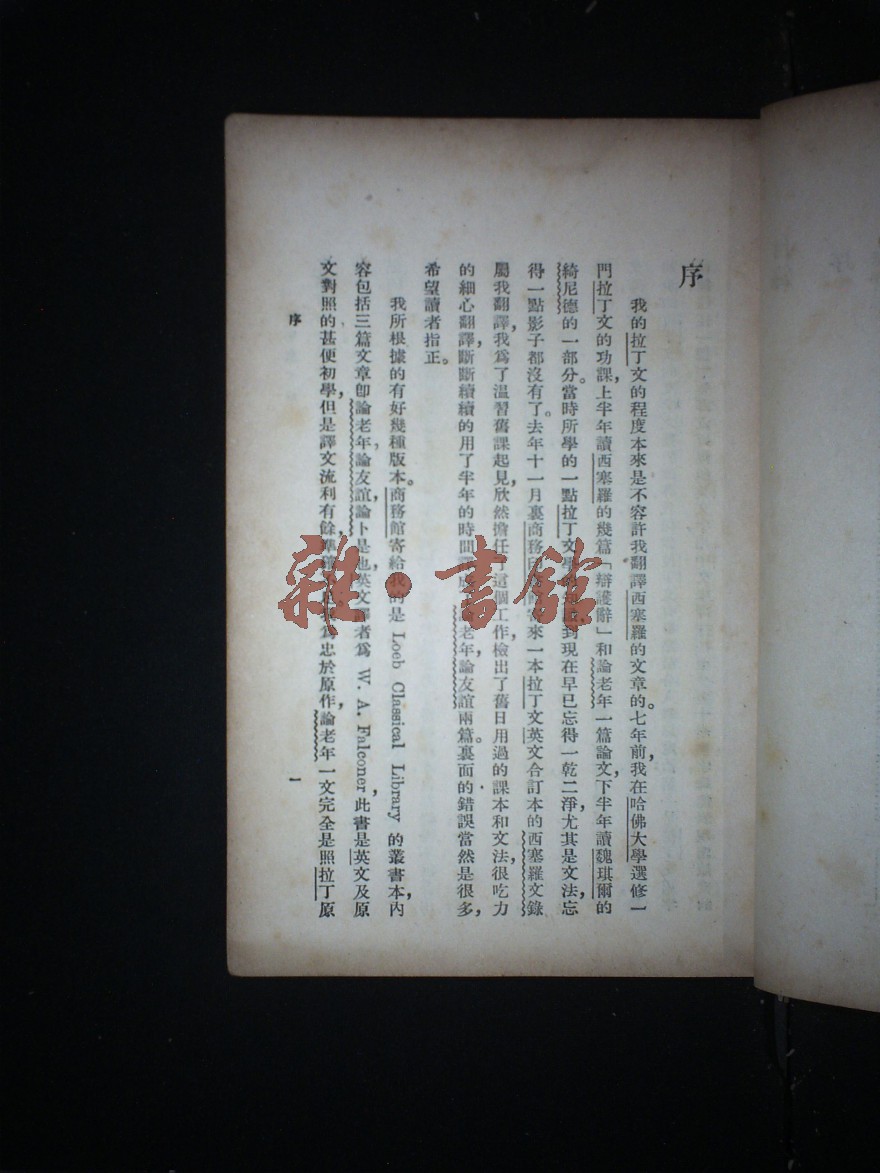 序
我的拉丁文的程度本來是不容許我翻譯西塞羅的文章的。七年前，我在哈佛大學選修一
門拉丁文的功課，上半年讀西塞羅的幾篇「辯護辭」和論老年一篇論文，下半年讀魏琪爾的
綺尼德的一部分。當時所學的一點拉丁文學到現在早已忘得一乾二淨，尤其是文法，忘
得一點影子都沒有了。去年十一月裏商務印來一本拉丁文英文合訂本的西塞羅文錄
屬我翻譯，我爲了溫習舊課起見，欣然擔任這個工作，檢出了舊日用過的課本和文法，很吃力
的細心翻譯，斷斷續續的用了半年的時間譯成論老年，論友誼兩篇。裏面的錯誤當然是很多，
希望讀者指正。
我所根據的有好幾種版本。商務館寄給我的是 Loeb Classical Library 的叢書本，內
容包括三篇文章卽論老年，論友誼，論卜是也，英文譯者爲 W. A. Falconer，此書是英文及原
文對照的甚便初學，但是譯文流利有餘，忠於原作，論老年一文完全是照拉丁原
序
一
雜·書館